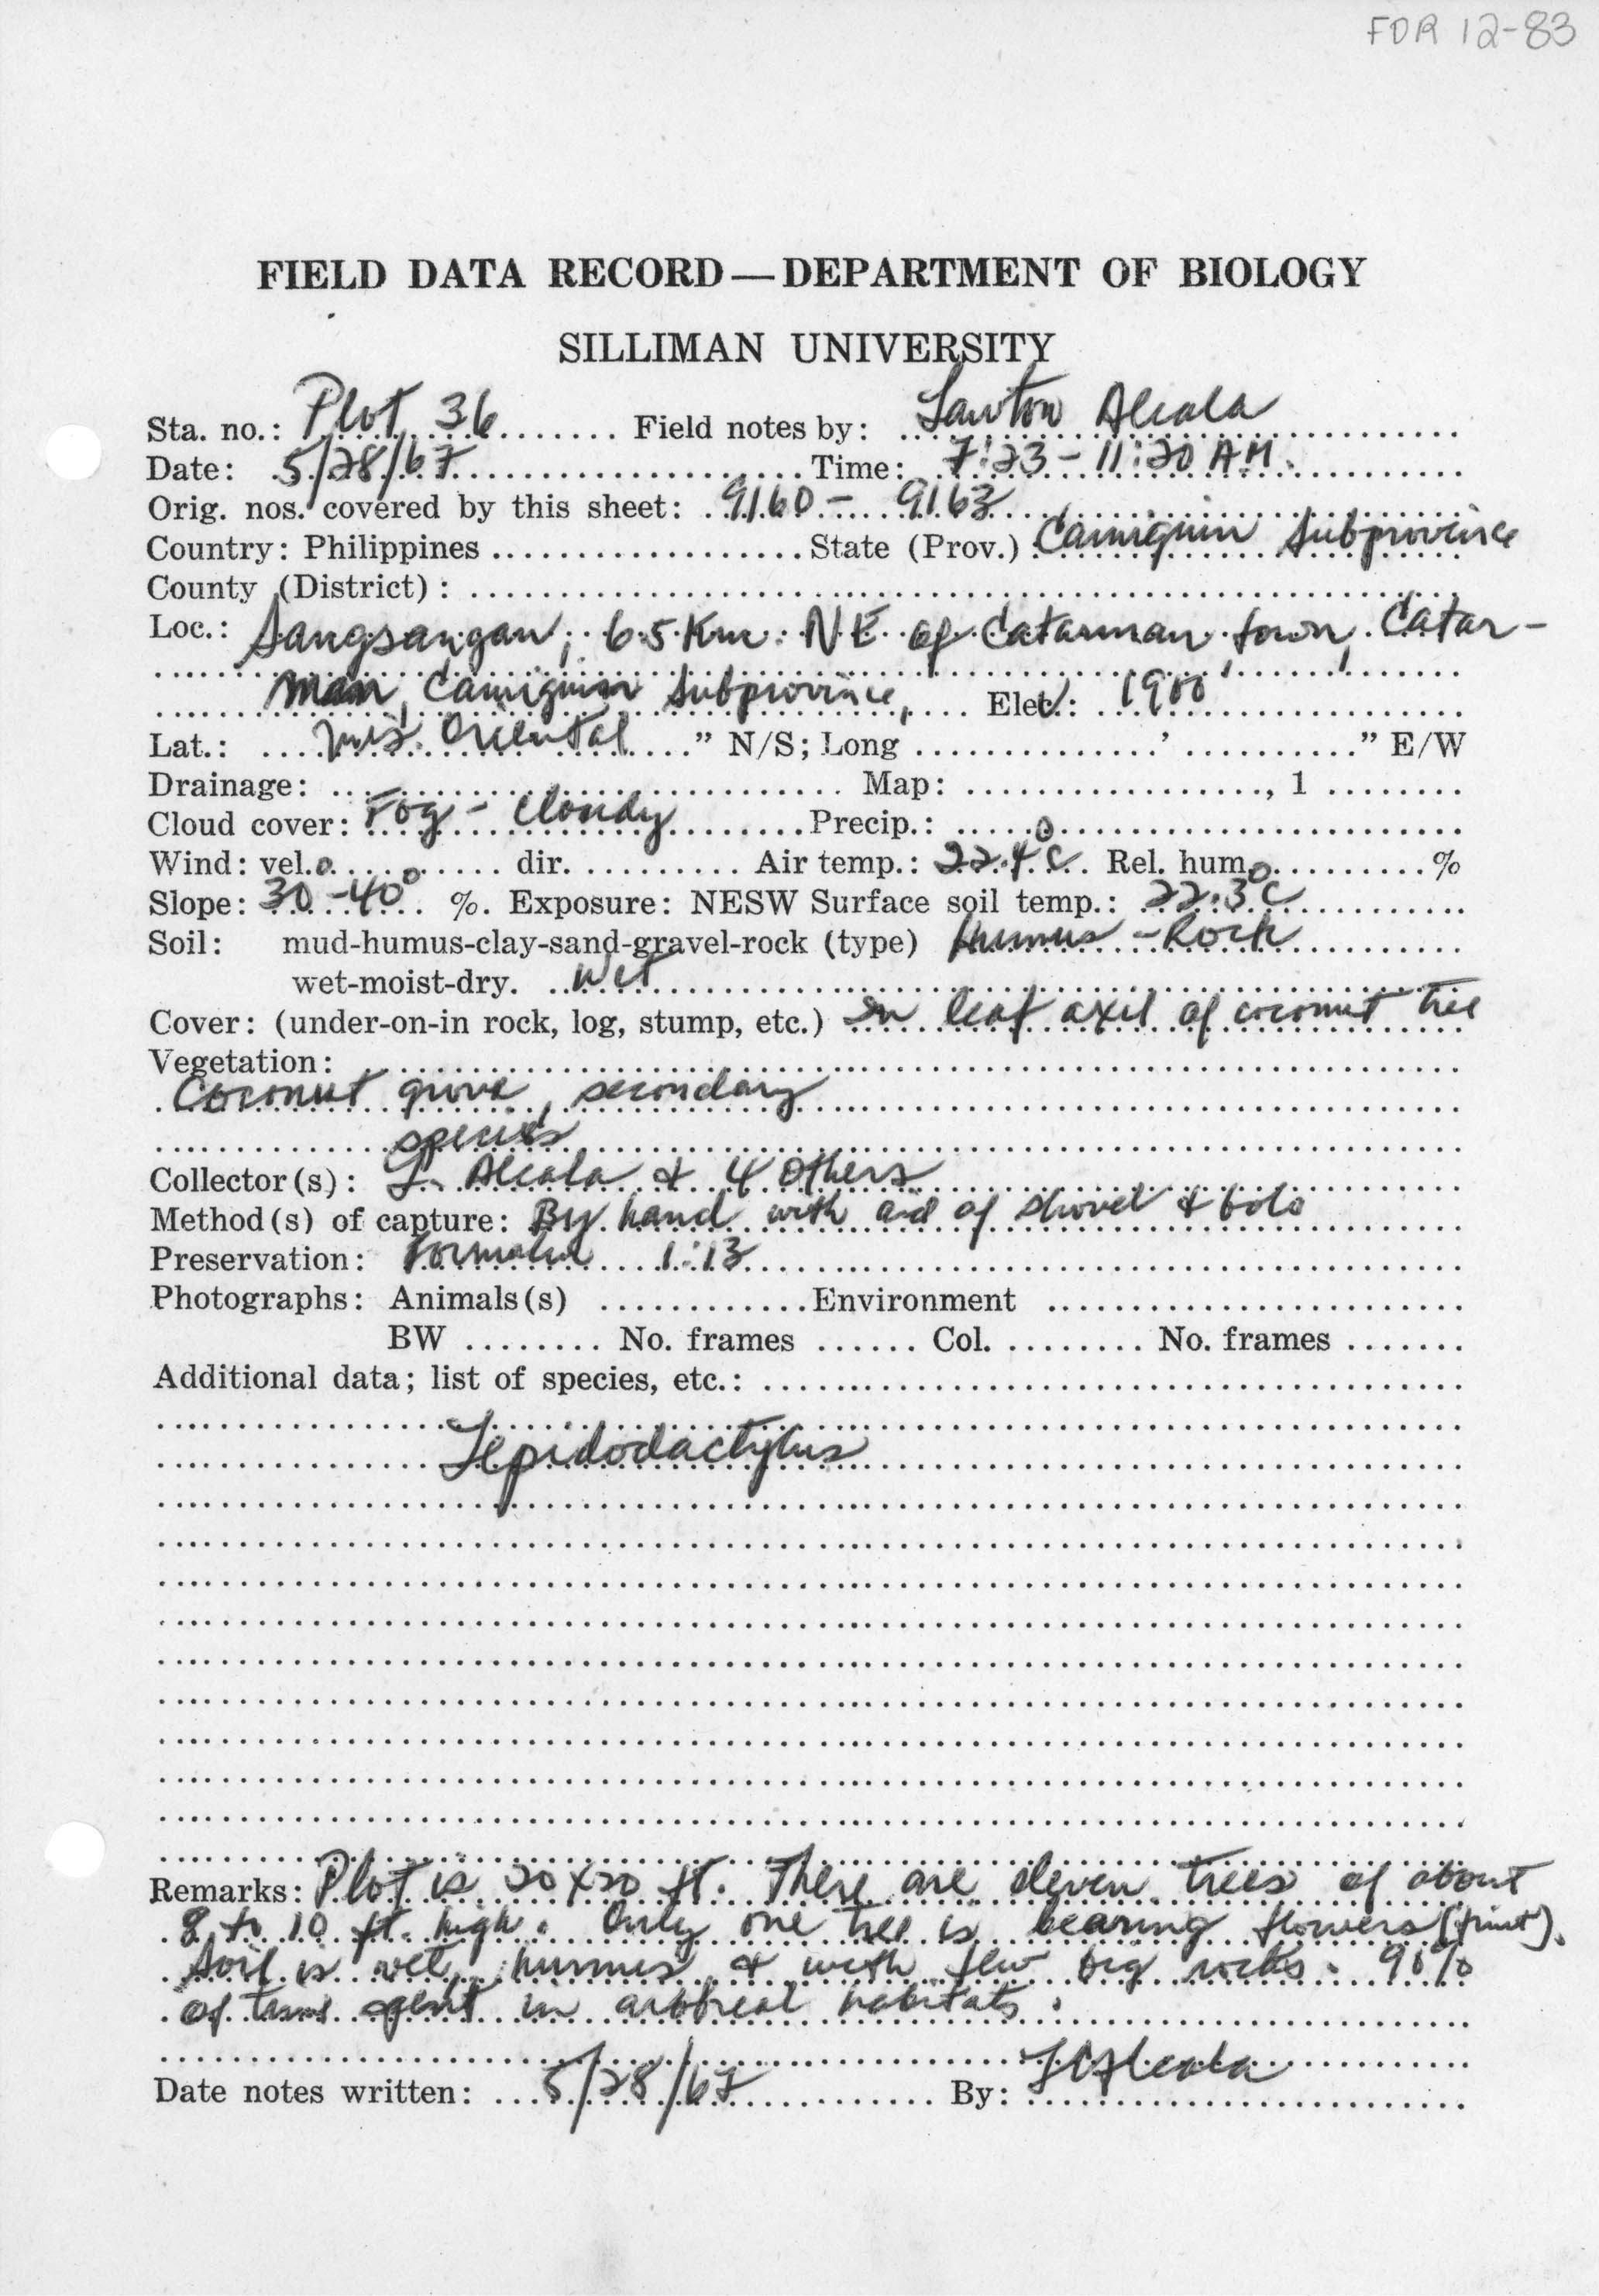 FDR 12-83
FIELD DATA RECORD—DEPARTMENT OF BIOLOGY
SILLIMAN UNIVERSITY
Sta. no.: Plot 36 Field notes by: Lawton Alcala
Date: 5/28/67 Time: 7:23 - 11:20 AM.
Orig. nos. covered by this sheet: 9160 - 9163
Country: Philippines State (Prov.) Camiguin Subprovince
County (District):
Loc.: Sangsangan, 6.5 Km. NE of Catarman town, Catar-
man, Camiguin Subprovince, Elev.: 1900'
Lat.: Mis. Oriental " N/S; Long ' " E/W
Drainage: Map: , 1
Cloud cover: Fog - Cloudy Precip.: 0
Wind: vel. 0 dir. Air temp.: 22.4°C. Rel. hum. 0 %
Slope: 30-40° %. Exposure: NESW Surface soil temp.: 22.3°C
Soil: mud-humus-clay-sand-gravel-rock (type) Humus - Rock
wet-moist-dry. Wet
Cover: (under-on-in rock, log, stump, etc.) In leaf axil of coconut tree
Vegetation:
Coconut grove, secondary
species
Collector(s): L. Alcala & 4 others
Method(s) of capture: By hand with aid of shovel & bolo
Preservation: Formalin 1:13
Photographs: Animals(s) Environment
BW No. frames Col. No. frames
Additional data; list of species, etc.:
Lepidodactylus
Remarks: Plot is 20 x 20 ft. There are eleven trees of about
8 to 10 ft. high. Only one tree is bearing flowers (fruit).
Soil is wet, humus, & with few big rocks. 90%
of time spent in arboreal habitats.
Date notes written: 5/28/67 By: LCAlcala